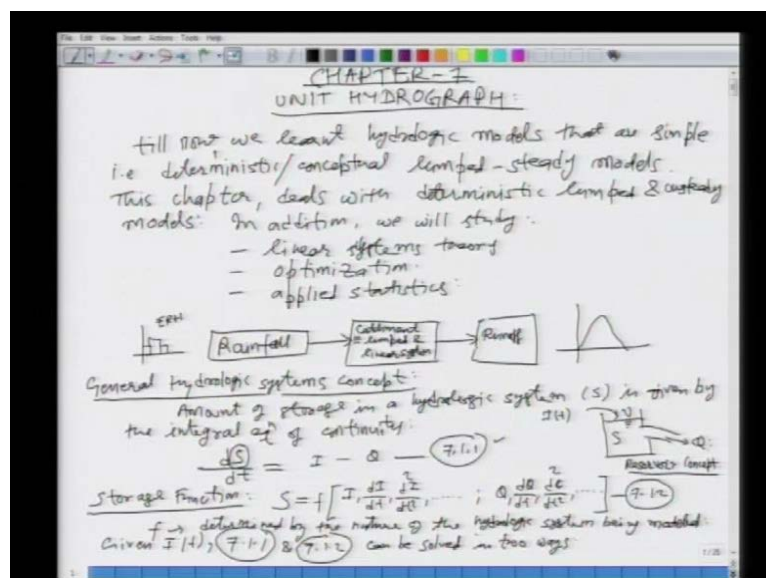 File Edit View Insert Actions Tools Help
CHAPTER-7
UNIT HYDROGRAPH:
till now, we learnt hydrologic models that are simple
i.e deterministic/conceptual lumped-steady models.
This chapter, deals with deterministic lumped & unsteady
models: In addition, we will study:
- linear systems theory
- optimization
- applied statistics:
ERH
Rainfall
Catchment
= lumped &
linear system
Runoff
General Hydrologic systems concept:
Amount of storage in a hydrologic system (S) is given by
the integral eqn of continuity:
I(t)
S
Q
Reservoir Concept
dS/dt = I - Q — (7.1.1)
Storage Function: S = f[I, dI/dt, d²I/dt², .....; Q, dQ/dt, d²Q/dt², .....] — (7.1.2)
f → determined by the nature of the hydrologic system being modeled.
Given I(t), (7.1.1) & (7.1.2) can be solved in two ways
1/25